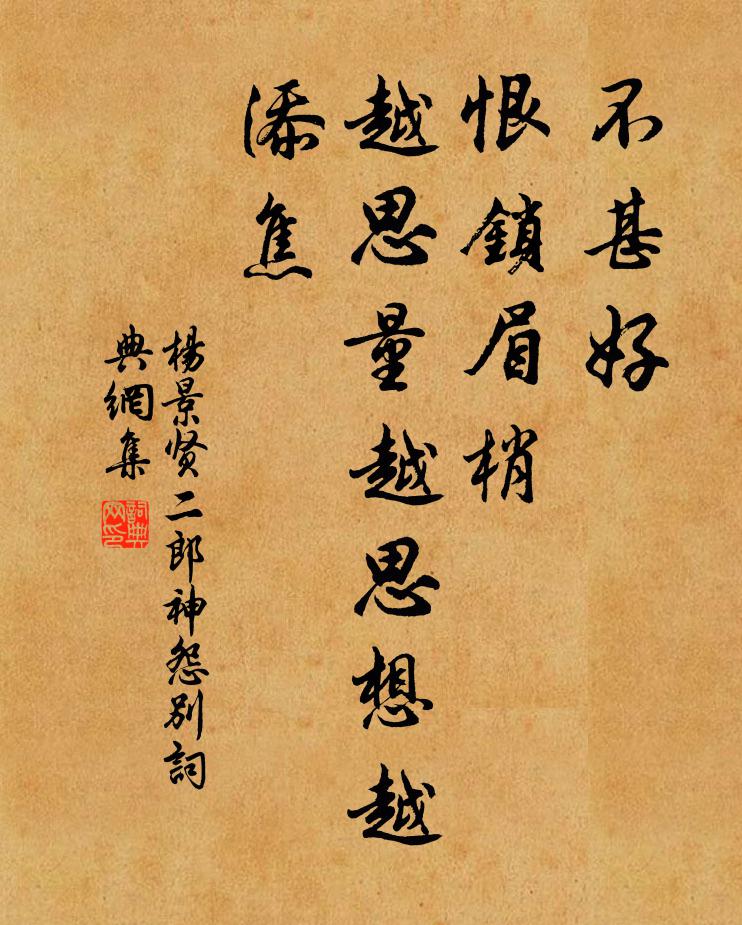 不甚好
恨鎖眉梢
越思量越思想越
添焦
楊景贤二郎神怨别詞
典網集
詞典
网印